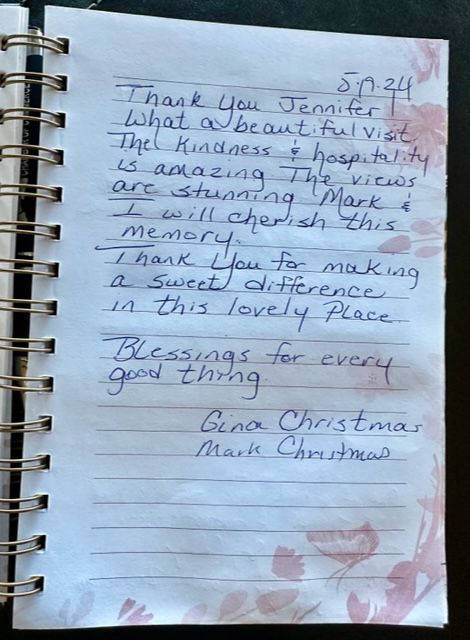 5.19.24
Thank you Jennifer
What a beautiful visit
The kindness & hospitality
is amazing The views
are stunning Mark &
I will cherish this
memory.
Thank you for making
a sweet difference
in this lovely place
Blessings for every
good thing
Gina Christmas
Mark Christmas